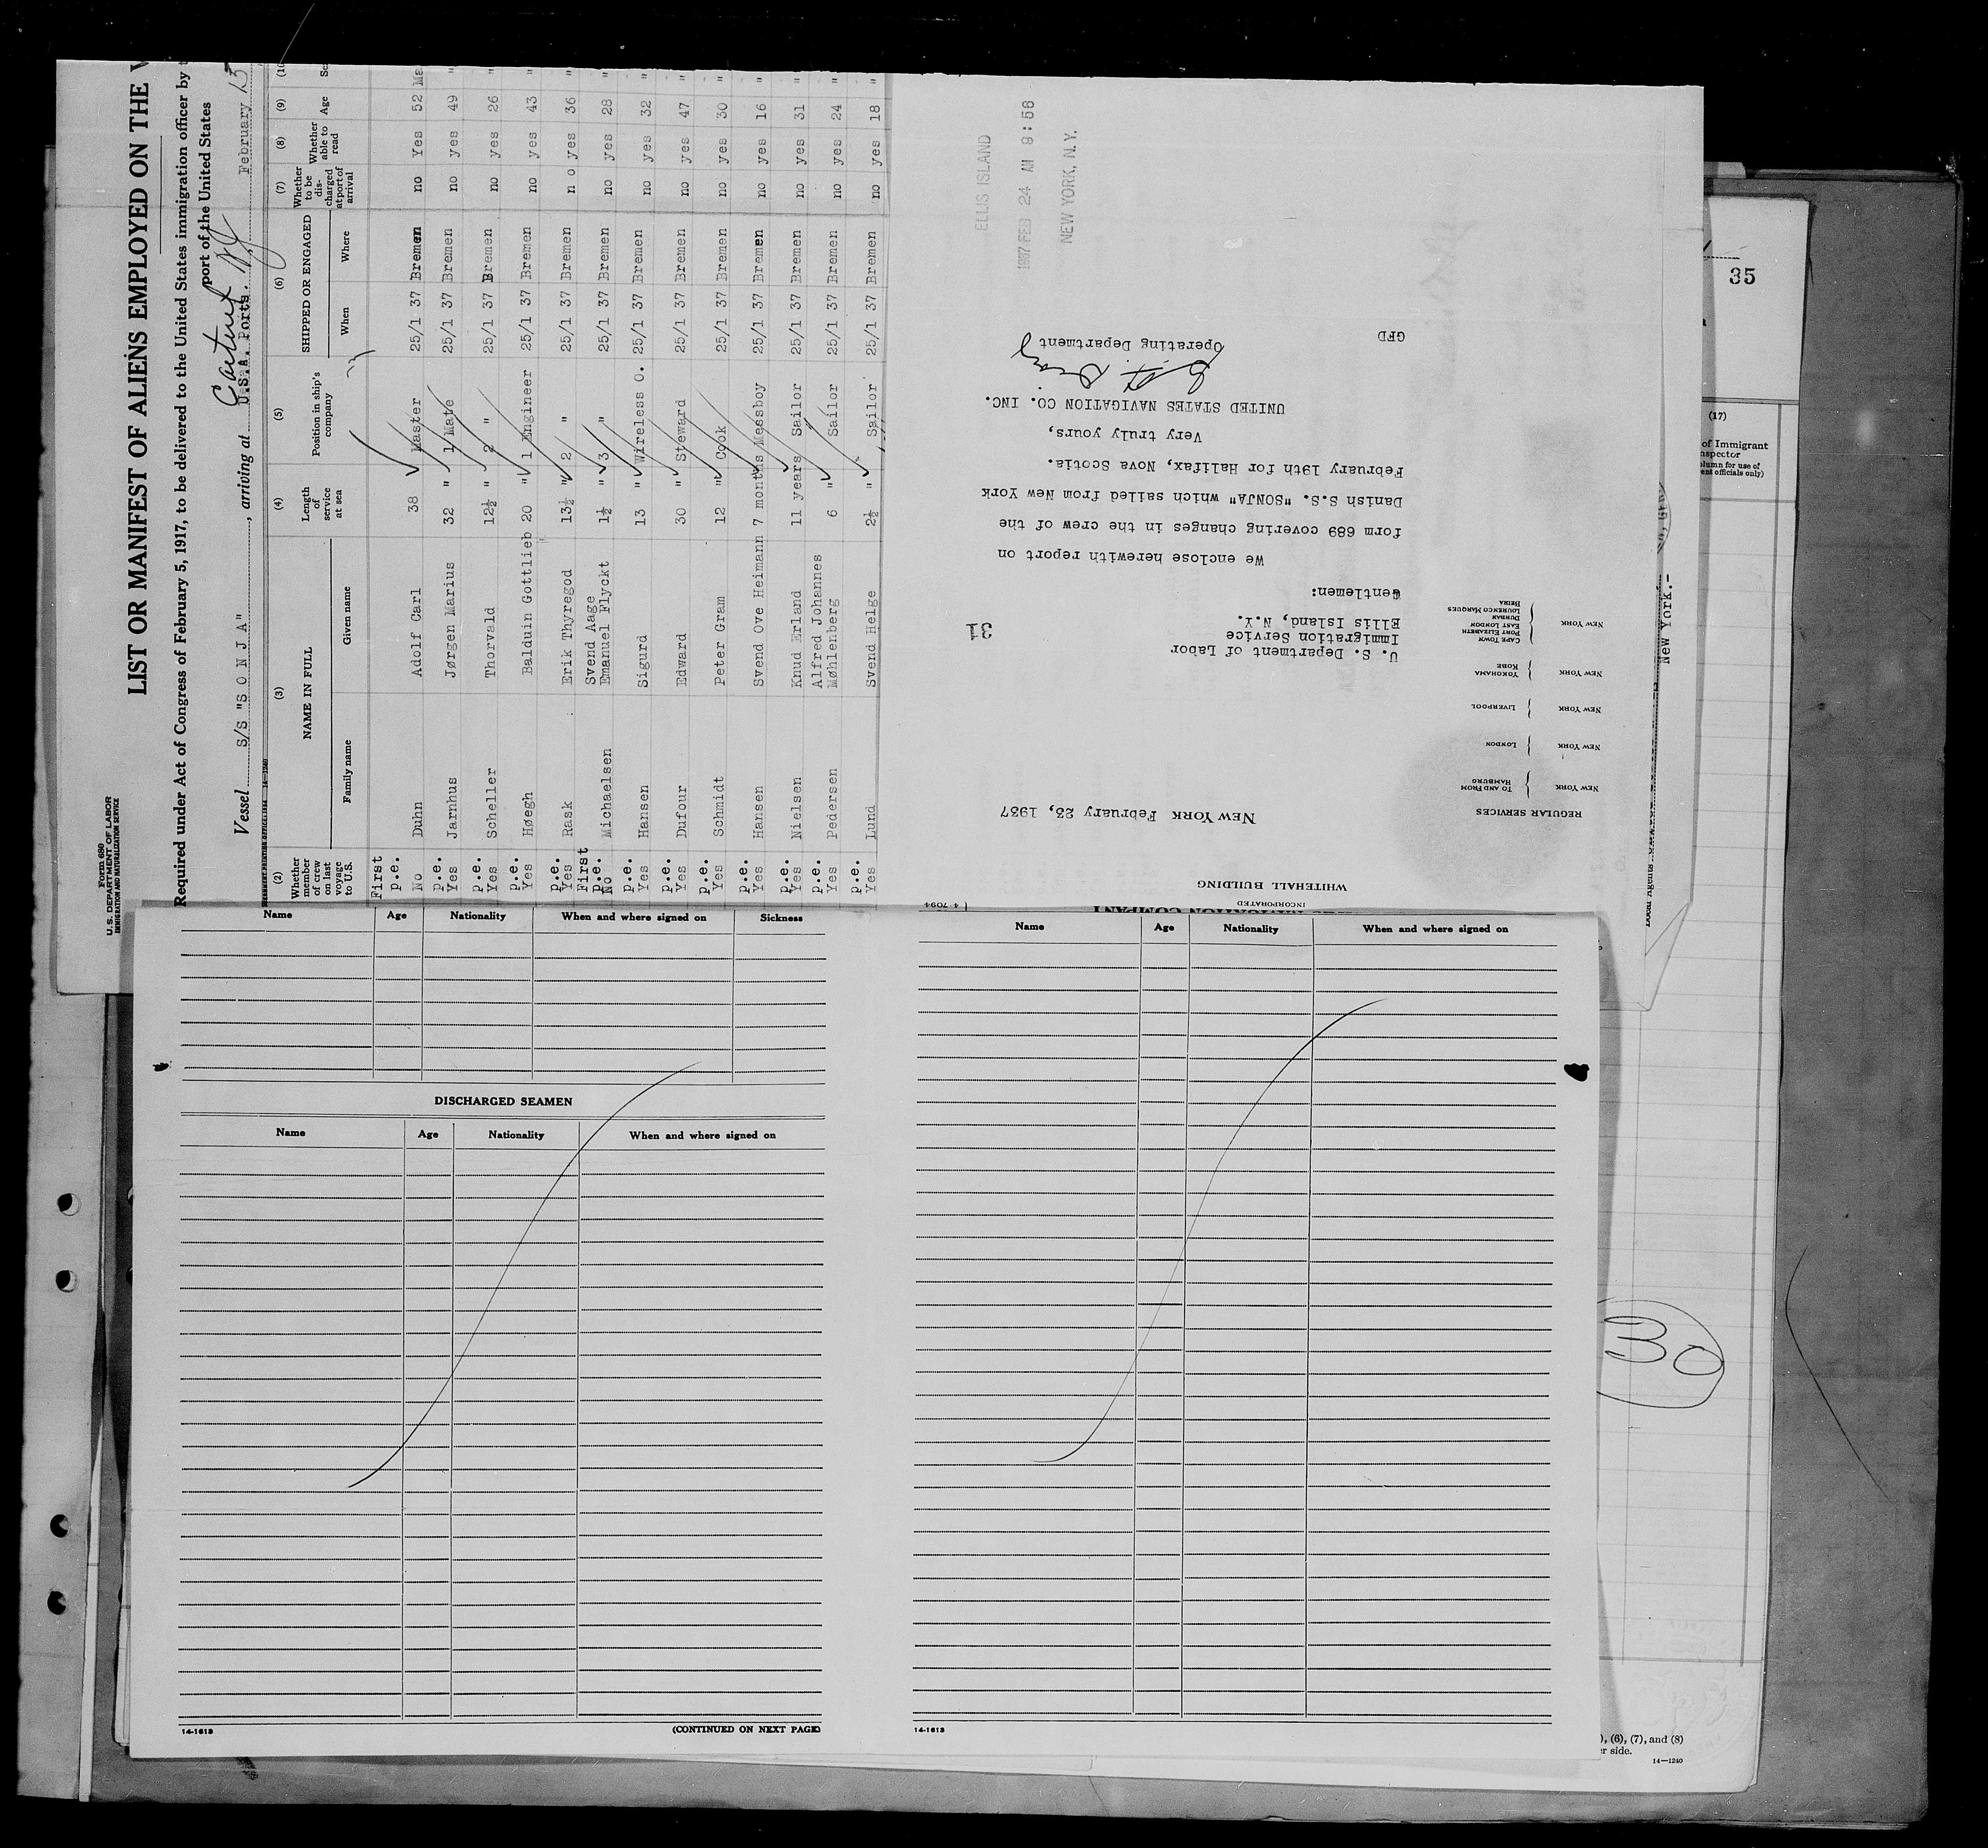 Form 680
U.S. DEPARTMENT OF LABOR
IMMIGRATION AND NATURALIZATION SERVICE
LIST OR MANIFEST OF ALIENS EMPLOYED ON THE
Required under Act of Congress of February 5, 1917, to be delivered to the United States immigration officer by
port of the United States
Vessel S/S "S O N J A", arriving at U.S.A. Ports. Carteret NJ, February 15
(2) (3) (4) (5) (6) (7) (8) (9) (10
Whether member of crew on last voyage to U.S. NAME IN FULL Family name Given name Length of service at sea Position in ship's company SHIPPED OR ENGAGED When Where Whether to be discharged at port of arrival Whether able to read Age
First
p.e. No Duhn Adolf Carl 38 Master 25/1 37 Bremen no Yes 52 Ma
p.e. Yes Jarnhus Jørgen Marius 32 " 1 Mate 25/1 37 Bremen no yes 49 "
p.e. Yes Scheller Thorvald 12½ " 2 " 25/1 37 Bremen no yes 26 "
p.e. Yes Høegh Balduin Gottlieb 20 " 1 Engineer 25/1 37 Bremen no yes 43 "
p.e. Yes Rask Erik Thyregod 13½ " 2 " 25/1 37 Bremen n o yes 36 "
First p.e. No Michaelsen Svend Aage Emanuel Flyckt 1½ " 3 " 25/1 37 Bremen no yes 28 "
p.e. Yes Hansen Sigurd 13 " Wireless O. 25/1 37 Bremen no yes 32 "
p.e. Yes Dufour Edward 30 " Steward 25/1 37 Bremen no yes 47 "
p.e. Yes Schmidt Peter Gram 12 " Cook 25/1 37 Bremen no yes 30 "
p.e. Yes Hansen Svend Ove Heimann 7 months Messboy 25/1 37 Bremen no yes 16 "
p.e. Yes Nielsen Knud Erland 11 years Sailor 25/1 37 Bremen no yes 31 "
p.e. Yes Pedersen Alfred Johannes Møhlenberg 6 " Sailor 25/1 37 Bremen no yes 24 "
p.e. Yes Lund Svend Helge 2½ " Sailor 25/1 37 Bremen no yes 18 "
INCORPORATED
WHITEHALL BUILDING
REGULAR SERVICES
NEW YORK } TO AND FROM HAMBURG
NEW YORK } LONDON
NEW YORK } LIVERPOOL
NEW YORK } YOKOHAMA KOBE
NEW YORK } CAPE TOWN PORT ELIZABETH EAST LONDON DURBAN LOURENCO MARQUES BEIRA
NEW YORK February 23, 1937
U. S. Department of Labor
Immigration Service
Ellis Island, N.Y.
31
Gentlemen:
We enclose herewith report on
form 689 covering changes in the crew of the
Danish S.S. "SONJA" which sailed from New York
February 19th for Halifax, Nova Scotia.
Very truly yours,
UNITED STATES NAVIGATION CO. INC.
Operating Department
GFD
ELLIS ISLAND
1937 FEB 24 AM 9:56
NEW YORK, N.Y.
New York.-
35
(17)
of Immigrant
30
), (6), (7), and (8)
er side.
14—1240
Name Age Nationality When and where signed on Sickness
DISCHARGED SEAMEN
Name Age Nationality When and where signed on
14-1613
(CONTINUED ON NEXT PAGE)
Name Age Nationality When and where signed on
14-1613